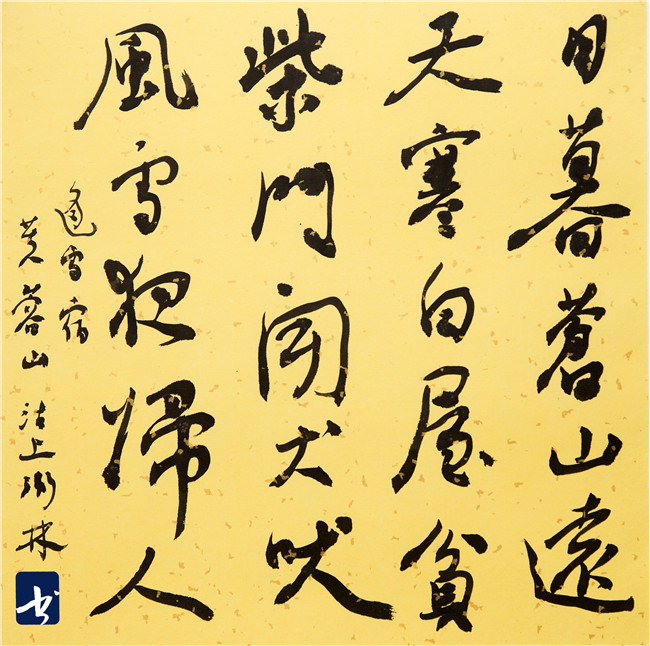 日暮蒼山遠
天寒白屋貧
柴門聞犬吠
風雪夜歸人
逢雪宿
芙蓉山 沽上 林
书